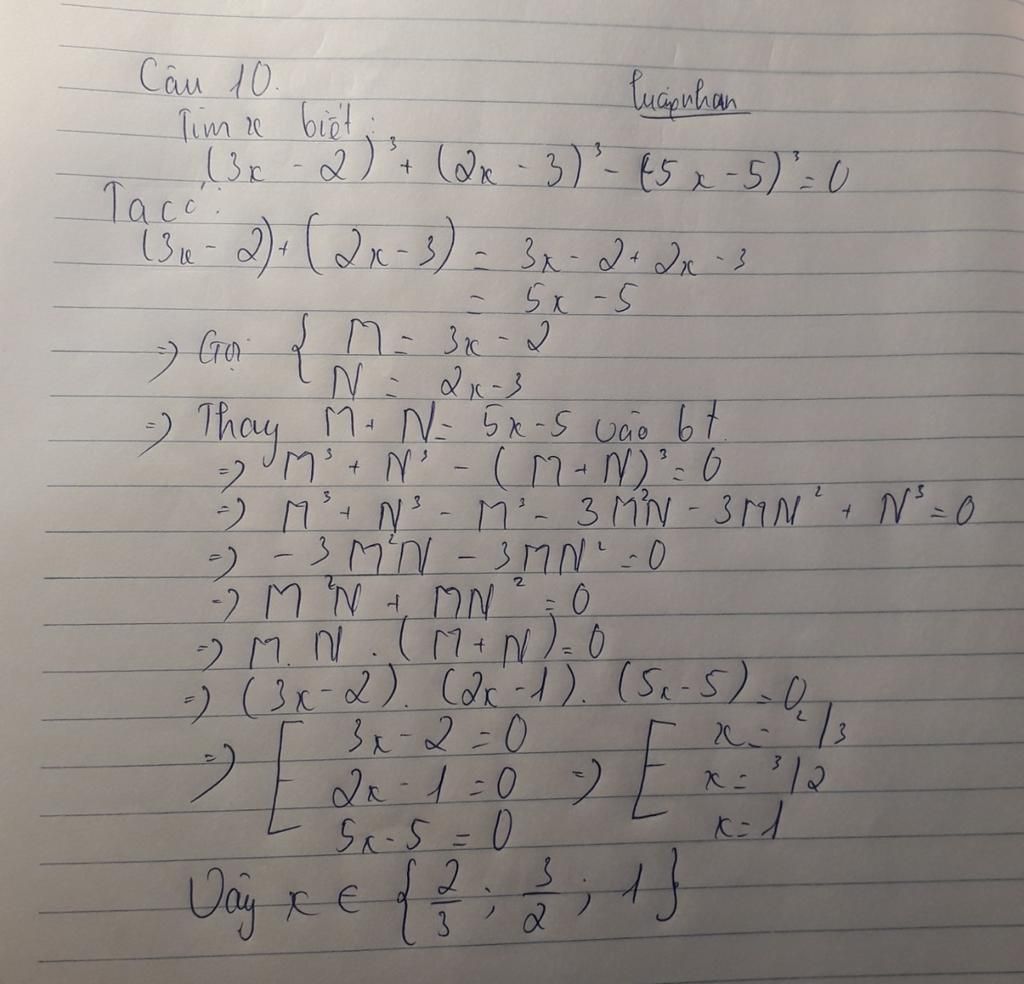 Câu 10.
tuápnhan
Tìm x biết:
(3x - 2)³ + (2x - 3)³ - (-5x - 5)³ = 0
Ta có:
(3x - 2) + (2x - 3) = 3x - 2 + 2x - 3
= 5x - 5
=> Gọi { M = 3x - 2
N = 2x - 3
=> Thay M + N = 5x - 5 vào bt
=> M³ + N³ - (M + N)³ = 0
=> M³ + N³ - M³ - 3M²N - 3MN² + N³ = 0
=> - 3M²N - 3MN² = 0
=> M²N + MN² = 0
=> M. N . (M + N) = 0
=> (3x - 2). (2x - 1). (5x - 5) = 0
=> [ 3x - 2 = 0 => [ x = 2/3
2x - 1 = 0 x = 3/2
5x - 5 = 0 x = 1
Vậy x ∈ {2/3 ; 3/2 ; 1}